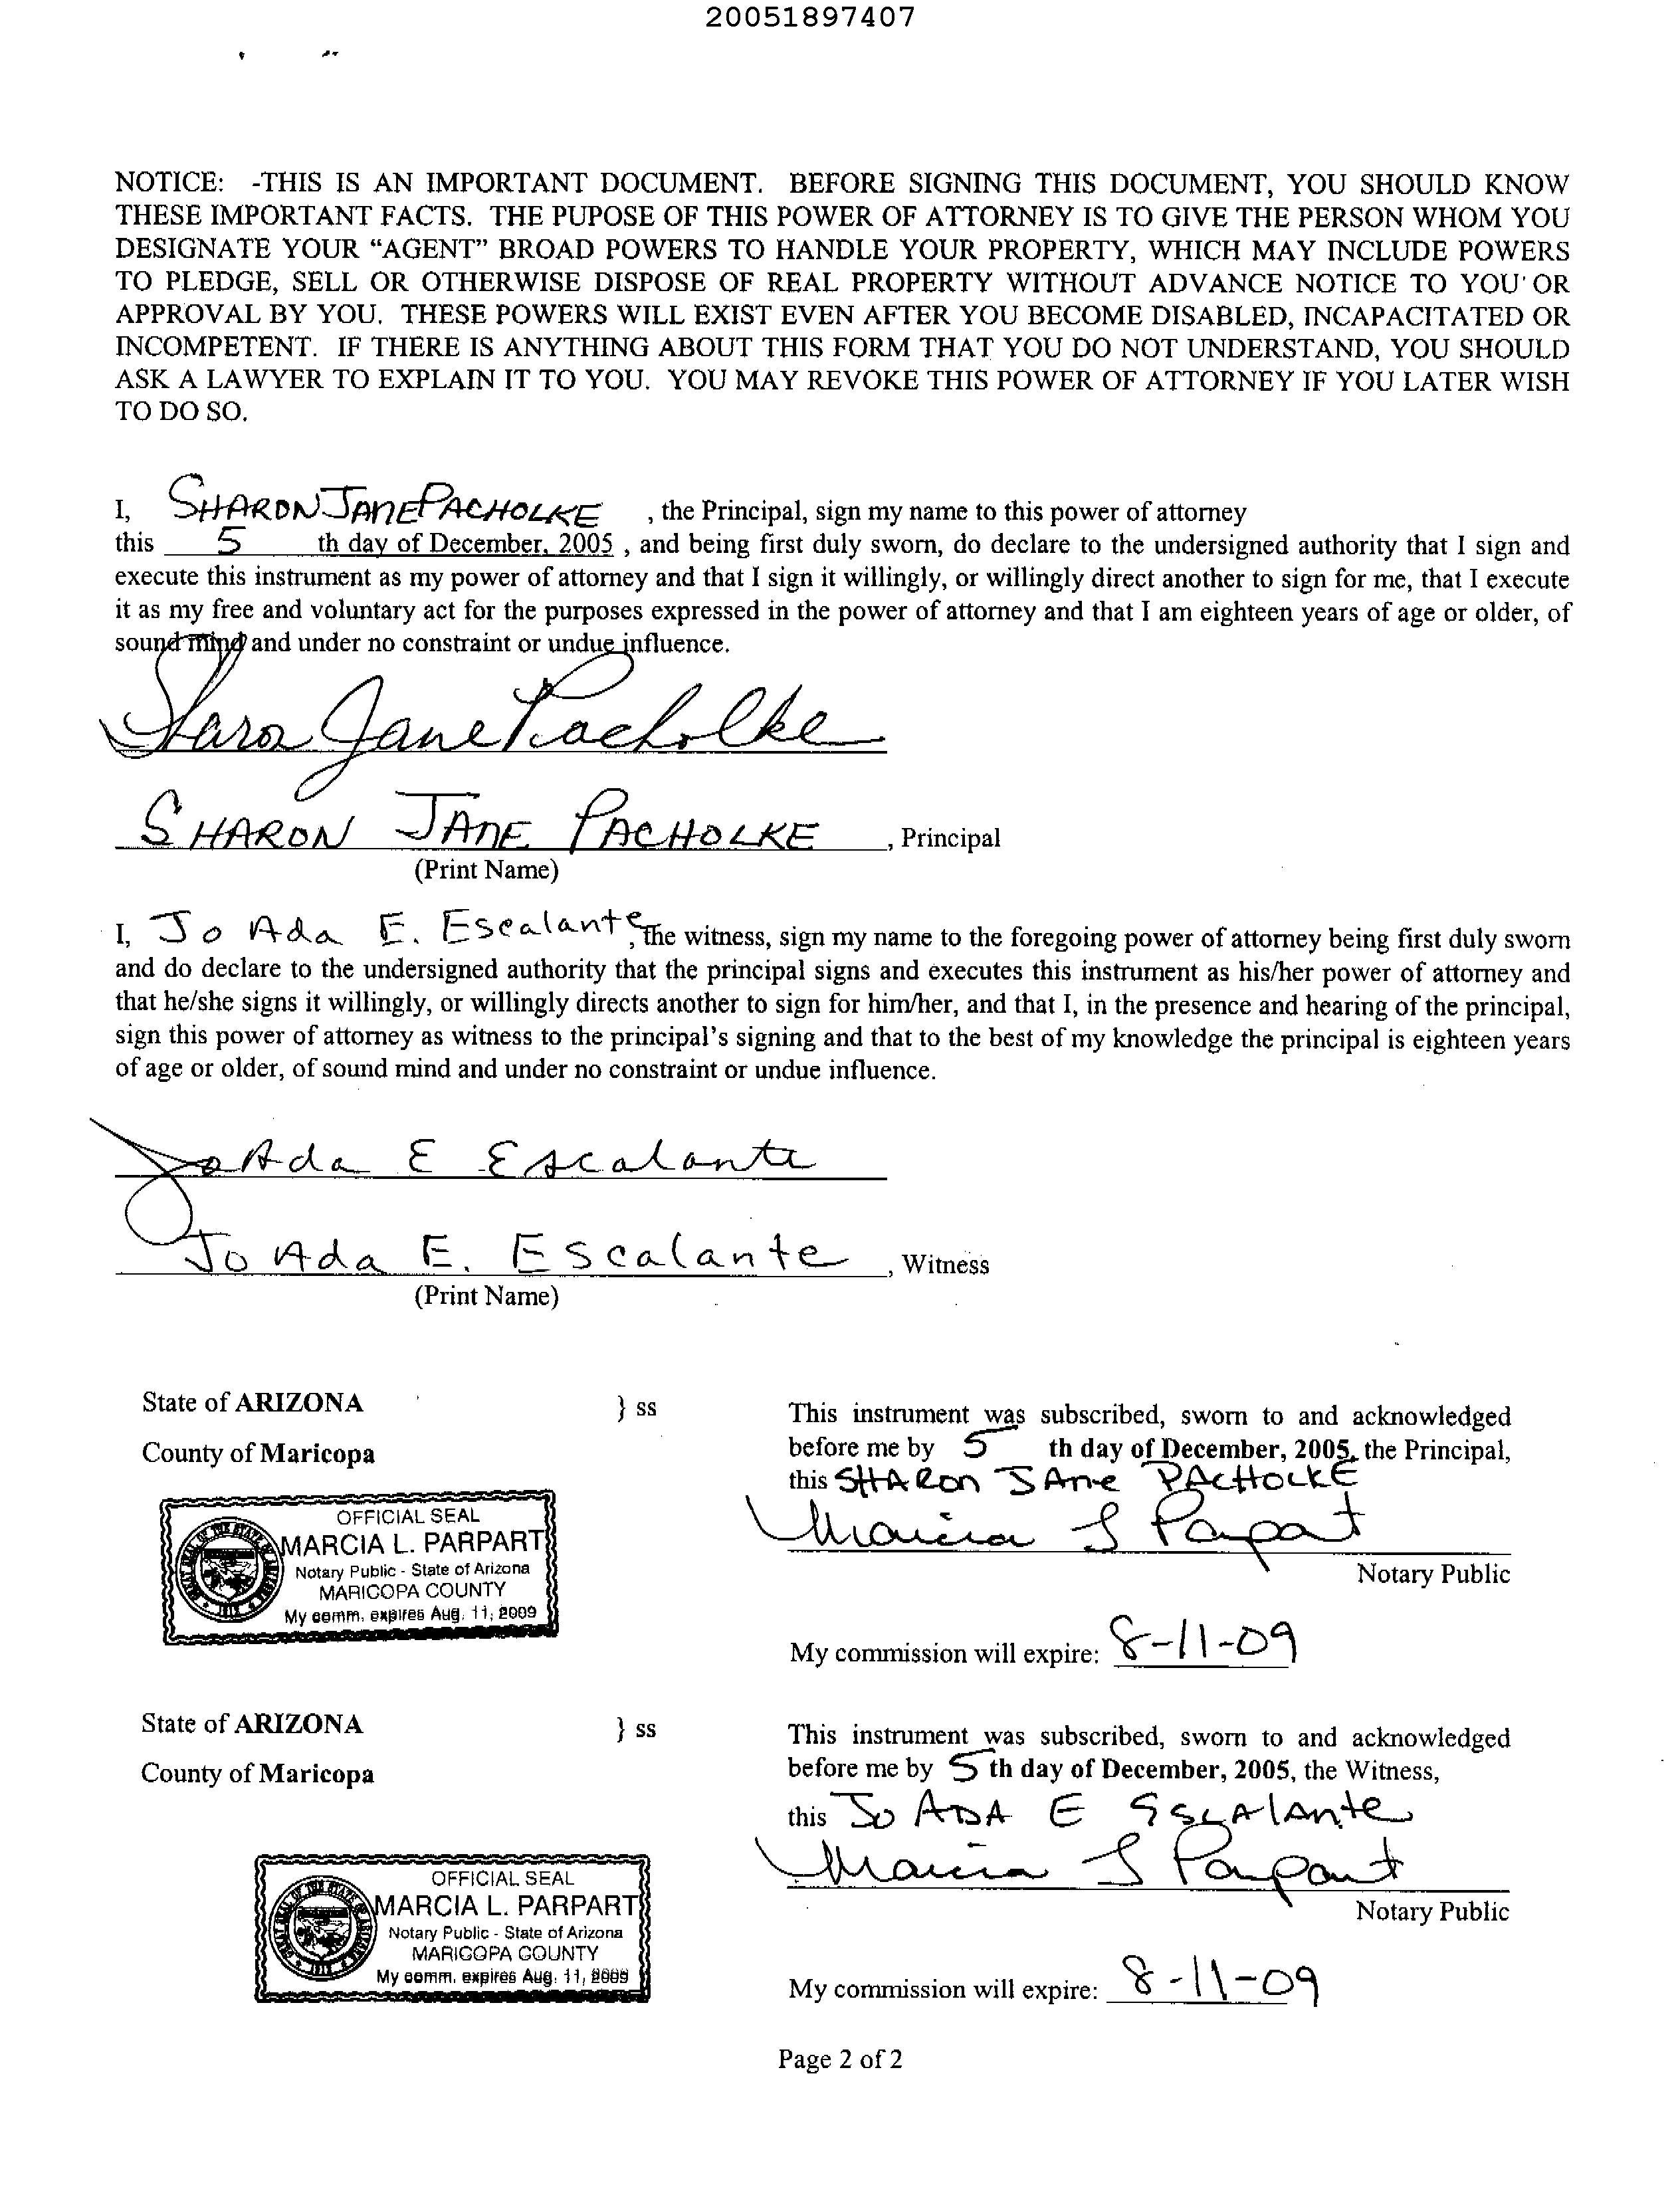 20051897407
NOTICE: -THIS IS AN IMPORTANT DOCUMENT. BEFORE SIGNING THIS DOCUMENT, YOU SHOULD KNOW
THESE IMPORTANT FACTS. THE PUPOSE OF THIS POWER OF ATTORNEY IS TO GIVE THE PERSON WHOM YOU
DESIGNATE YOUR “AGENT” BROAD POWERS TO HANDLE YOUR PROPERTY, WHICH MAY INCLUDE POWERS
TO PLEDGE, SELL OR OTHERWISE DISPOSE OF REAL PROPERTY WITHOUT ADVANCE NOTICE TO YOU OR
APPROVAL BY YOU. THESE POWERS WILL EXIST EVEN AFTER YOU BECOME DISABLED, INCAPACITATED OR
INCOMPETENT. IF THERE IS ANYTHING ABOUT THIS FORM THAT YOU DO NOT UNDERSTAND, YOU SHOULD
ASK A LAWYER TO EXPLAIN IT TO YOU. YOU MAY REVOKE THIS POWER OF ATTORNEY IF YOU LATER WISH
TO DO SO.
I, SHARON JANE PACHOLKE, the Principal, sign my name to this power of attorney
this 5 th day of December, 2005, and being first duly sworn, do declare to the undersigned authority that I sign and
execute this instrument as my power of attorney and that I sign it willingly, or willingly direct another to sign for me, that I execute
it as my free and voluntary act for the purposes expressed in the power of attorney and that I am eighteen years of age or older, of
sound mind and under no constraint or undue influence.
Jane Pacholke
SHARON JANE PACHOLKE, Principal
(Print Name)
I, Jo Ada E. Escalante, the witness, sign my name to the foregoing power of attorney being first duly sworn
and do declare to the undersigned authority that the principal signs and executes this instrument as his/her power of attorney and
that he/she signs it willingly, or willingly directs another to sign for him/her, and that I, in the presence and hearing of the principal,
sign this power of attorney as witness to the principal’s signing and that to the best of my knowledge the principal is eighteen years
of age or older, of sound mind and under no constraint or undue influence.
Jo Ada E Escalante
Jo Ada E. Escalante, Witness
(Print Name)
State of ARIZONA } ss
County of Maricopa
This instrument was subscribed, sworn to and acknowledged
before me by 5 th day of December, 2005, the Principal,
this SHARon JAne PAcHOLKE
Marcia L Parpart
Notary Public
OFFICIAL SEAL
MARCIA L. PARPART
Notary Public - State of Arizona
MARICOPA COUNTY
My comm. expires Aug. 11, 2009
My commission will expire: 8-11-09
State of ARIZONA } ss
County of Maricopa
This instrument was subscribed, sworn to and acknowledged
before me by 5 th day of December, 2005, the Witness,
this Jo ADA E EscAlAnte
Marcia L Parpart
Notary Public
OFFICIAL SEAL
MARCIA L. PARPART
Notary Public - State of Arizona
MARICOPA COUNTY
My comm. expires Aug. 11, 2009
My commission will expire: 8-11-09
Page 2 of 2